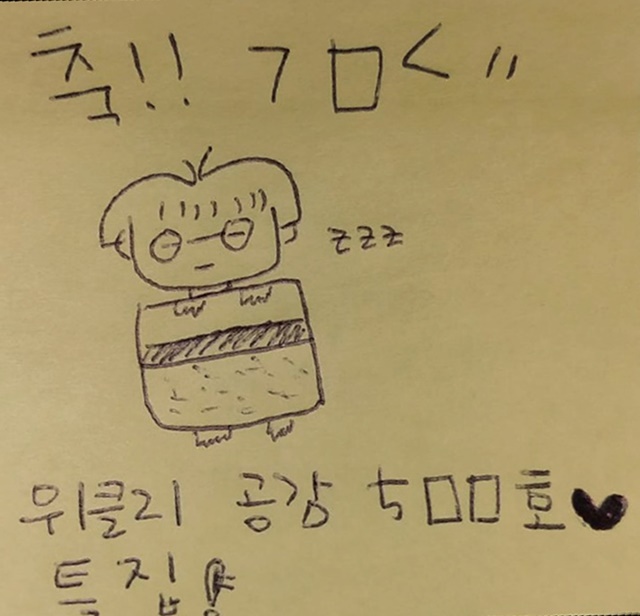 축!! ㄱㅁ<〃
zzz
위클리 공감 5ㅁㅁ호♥
특집